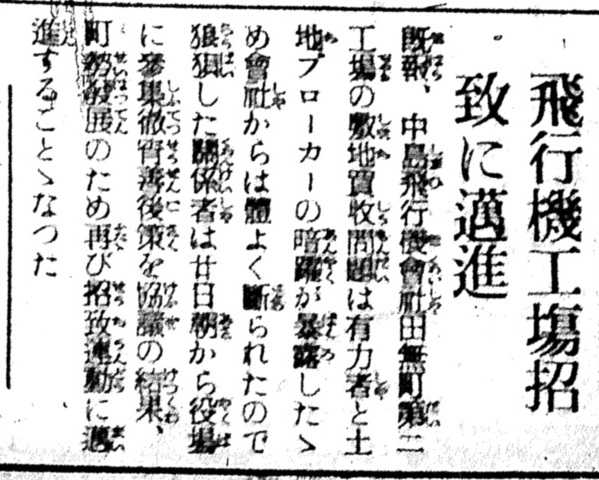 飛行機工場招
致に邁進
既報、中島飛行機會社田無町第二
工場の敷地買收問題は有力者と土
地ブローカーの暗躍が暴露したゝ
め會社からは體よく斷られたので
狼狽した關係者は廿日朝から役場
に參集徹宵善後策を協議の結果、
町勢發展のため再び招致運動に邁
進することゝなつた